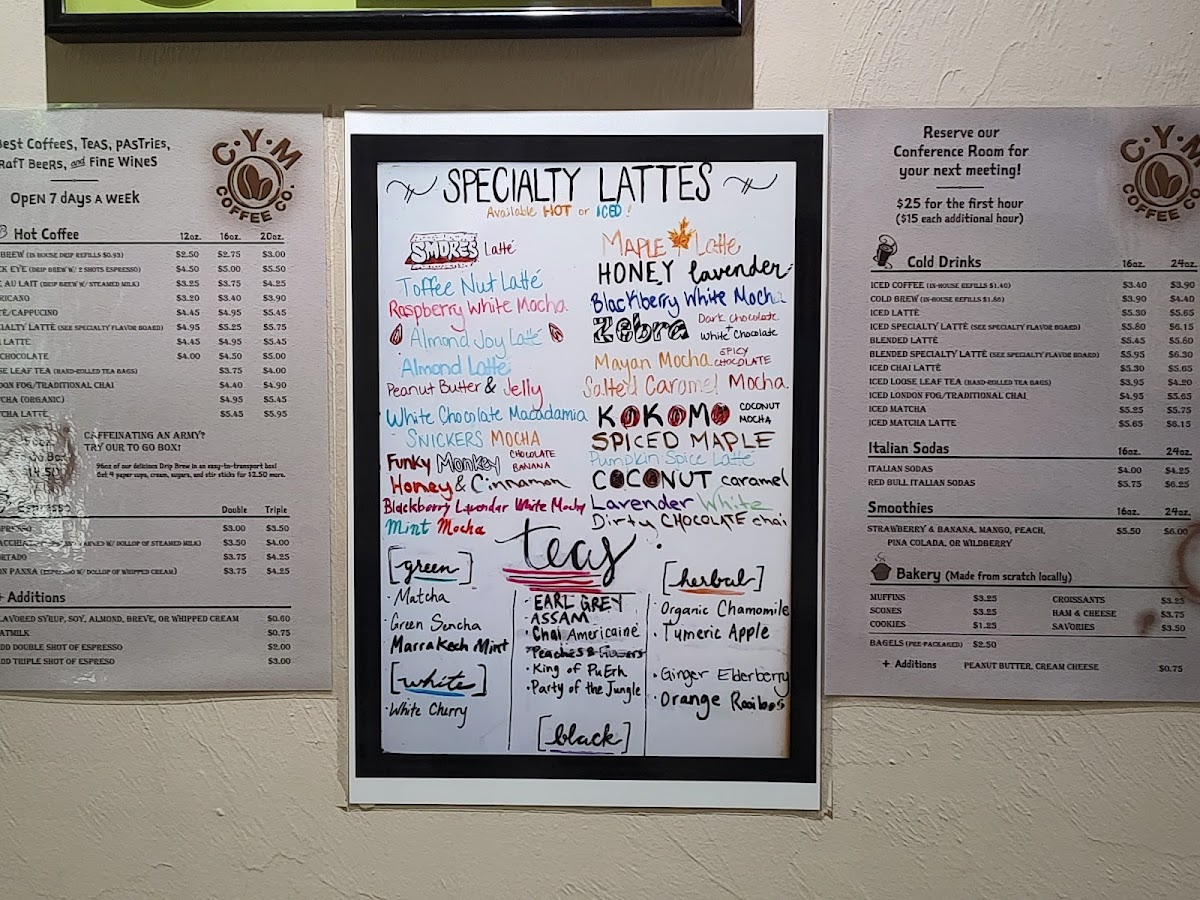 Best Coffees, Teas, Pastries,
Craft Beers, and Fine Wines
OPEN 7 DAYS A WEEK
C.Y.M
COFFEE CO.
Hot Coffee 12oz. 16oz. 20oz.
BREW (IN HOUSE DRIP REFILLS $0.93) $2.50 $2.75 $3.00
EYE (DRIP BREW W/ 2 SHOTS ESPRESSO) $4.50 $5.00 $5.50
AU LAIT (DRIP BREW W/ STEAMED MILK) $3.25 $3.75 $4.25
RICANO $3.20 $3.40 $3.90
TE/CAPPUCINO $4.45 $4.95 $5.45
IALTY LATTÉ (SEE SPECIALTY FLAVOR BOARD) $4.95 $5.25 $5.75
LATTÉ $4.45 $4.95 $5.45
CHOCOLATE $4.00 $4.50 $5.00
SE LEAF TEA (HAND-ROLLED TEA BAGS) $3.75 $4.00
ON FOG/TRADITIONAL CHAI $4.40 $4.90
CHA (ORGANIC) $4.95 $5.45
CHA LATTÉ $5.45 $5.95
CAFFEINATING AN ARMY?
TRY OUR TO GO BOX!
96oz of our delicious Drip Brew in an easy-to-transport box!
Get 4 paper cups, cream, sugars, and stir sticks for $2.50 more.
Espresso Double Triple
PRESSO $3.00 $3.50
W/ DOLLOP OF STEAMED MILK) $3.50 $4.00
RTADO $3.75 $4.25
ON PANNA (ESPRESSO W/ DOLLOP OF WHIPPED CREAM) $3.75 $4.25
+ Additions
LAVORED SYRUP, SOY, ALMOND, BREVE, OR WHIPPED CREAM $0.60
OATMILK $0.75
ADD DOUBLE SHOT OF ESPRESSO $2.00
ADD TRIPLE SHOT OF ESPRESO $3.00
SPECIALTY LATTES
Available HOT or ICED!
SMORES Latté
Toffee Nut Latté
Raspberry White Mocha
Almond Joy Latté
Almond Latté
Peanut Butter & Jelly
White Chocolate Macadamia
SNICKERS MOCHA
Funky Monkey CHOCOLATE BANANA
Honey & Cinnamon
Blackberry Lavendar White Mocha
Mint Mocha
MAPLE Latte
HONEY lavender
Blackberry White Mocha
Zebra Dark Chocolate + White Chocolate
Mayan Mocha SPICY CHOCOLATE
Salted Caramel Mocha
KOKOMO COCONUT MOCHA
SPICED MAPLE
Pumpkin Spice Latté
COCONUT caramel
Lavender White
Dirty CHOCOLATE chai
teas
[green]
· Matcha
· Green Sencha
· Marrakech Mint
[white]
· White Cherry
· EARL GREY
· ASSAM
· Chai Americaine
· Peaches & Flowers
· King of PuErh
· Party of the Jungle
[black]
[herbal]
· Organic Chamomile
· Tumeric Apple
· Ginger Elderberry
· Orange Rooibos
Reserve our
Conference Room for
your next meeting!
$25 for the first hour
($15 each additional hour)
C.Y.M
COFFEE CO.
Cold Drinks 16oz. 24oz.
ICED COFFEE (IN-HOUSE REFILLS $1.40) $3.40 $3.90
COLD BREW (IN-HOUSE REFILLS $1.86) $3.90 $4.40
ICED LATTÉ $5.30 $5.65
ICED SPECIALTY LATTÉ (SEE SPECIALTY FLAVOR BOARD) $5.80 $6.15
BLENDED LATTÉ $5.45 $5.60
BLENDED SPECIALTY LATTÉ (SEE SPECIALTY FLAVOR BOARD) $5.95 $6.30
ICED CHAI LATTÉ $5.30 $5.65
ICED LOOSE LEAF TEA (HAND-ROLLED TEA BAGS) $3.95 $4.20
ICED LONDON FOG/TRADITIONAL CHAI $4.95 $5.65
ICED MATCHA $5.25 $5.75
ICED MATCHA LATTÉ $5.65 $6.15
Italian Sodas 16oz. 24oz.
ITALIAN SODAS $4.00 $4.25
RED BULL ITALIAN SODAS $5.75 $6.25
Smoothies 16oz. 24oz.
STRAWBERRY & BANANA, MANGO, PEACH, $5.50 $6.00
PINA COLADA, OR WILDBERRY
Bakery (Made from scratch locally)
MUFFINS $3.25 CROISSANTS $3.25
SCONES $3.25 HAM & CHEESE $3.75
COOKIES $1.25 SAVORIES $3.50
BAGELS (PRE-PACKAGED) $2.50
+ Additions PEANUT BUTTER, CREAM CHEESE $0.75